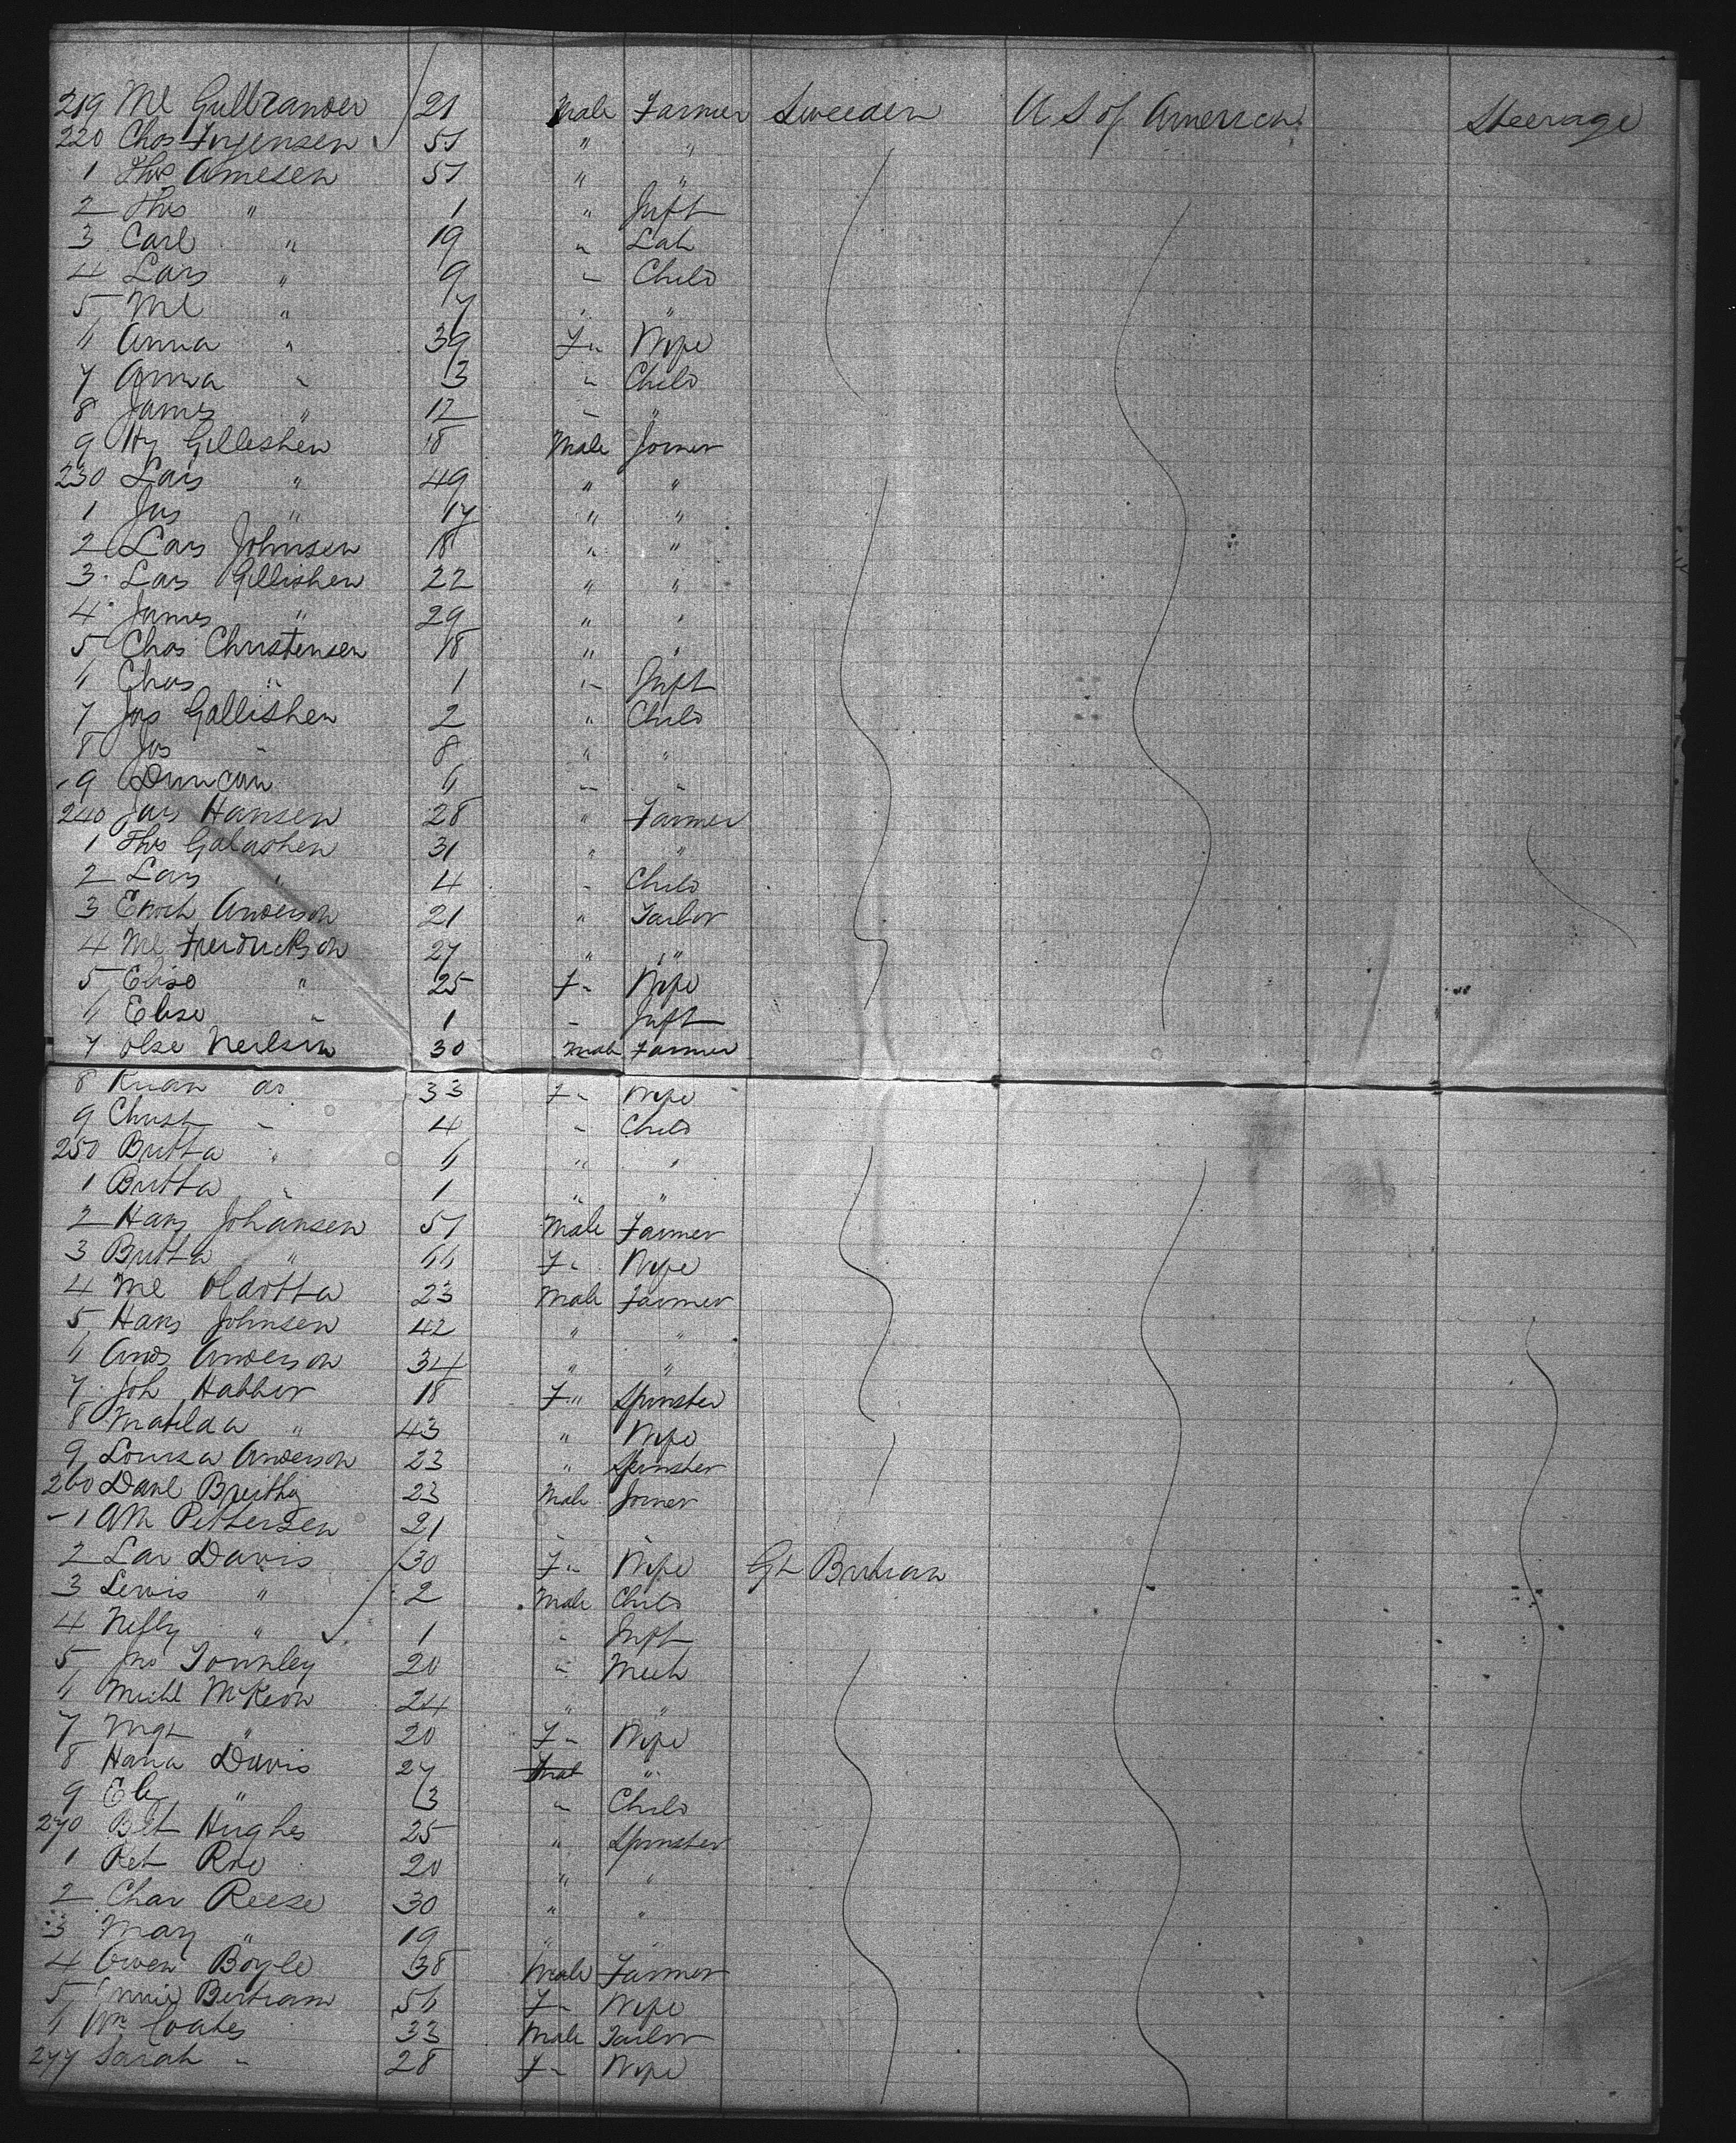 219 Ml Gulbrander 21 Male Farmer Sweeden U S of America Steerage
220 Chas Jorgensen 51 " "
1 Thos Arnesen 51 " "
2 Thos " 1 " Inft
3 Carl " 19 " Lab
4 Lars " 9 " Child
5 Ml " 7 " "
6 Anna " 39 F " Wife
7 Anna " 3 " Child
8 James " 12 " "
9 Hy Gilleshen 18 Male Joiner
230 Lars " 49 " "
1 Jas " 17 " "
2 Lars Johnsen 18 " "
3 Lars Gillishen 22 " "
4 James " 29 " "
5 Chas Christensen 18 " "
6 Chas " 1 " Inft
7 Jas Gallishen 2 " Child
8 Jas " 8 " "
9 Duncan 6 " "
240 Jas Hansen 28 " Farmer
1 Thos Galashen 31 " "
2 Lars " 4 " Child
3 Enoch Anderson 21 " Tailor
4 Ml Fredrickson 27 " "
5 Elise " 25 F " Wife
6 Elise " 1 " Inft
7 Olse Neilsen 30 Male Farmer
8 do 33 F " Wife
9 Christ " 4 " Child
250 Britta " 6 " "
1 Britta " 1 " "
2 Hans Johansen 51 Male Farmer
3 Britta " 66 F " Wife
4 Ml Oldotta 23 Male Farmer
5 Hans Johnsen 42 " "
6 Ands Anderson 34 " "
7 Joh Habber 18 F " Spinster
8 Matilda " 43 " Wife
9 Louisa Anderson 23 " Spinster
260 Danl 23 Male Joiner
1 Pettersen 21 " "
2 Sar Davis 30 F " Wife Gt Britain
3 Lewis " 2 Male Child
4 Nelly " 1 " Inft
5 Jno Townley 20 " Mech
6 Michl McKeon 24 " "
7 Mgt " 20 F " Wife
8 Hana Davis 27 "
9 Eliz " 3 " Child
270 Bet Hughes 25 " Spinster
1 Roe 20 " "
2 Char Reese 30 " "
3 Mary " 19 " "
4 Owen Boyle 38 Male Farmer
5 Annie Bertram 56 F " Wife
6 Wm Coates 33 Male Tailor
277 Sarah " 28 F " Wife